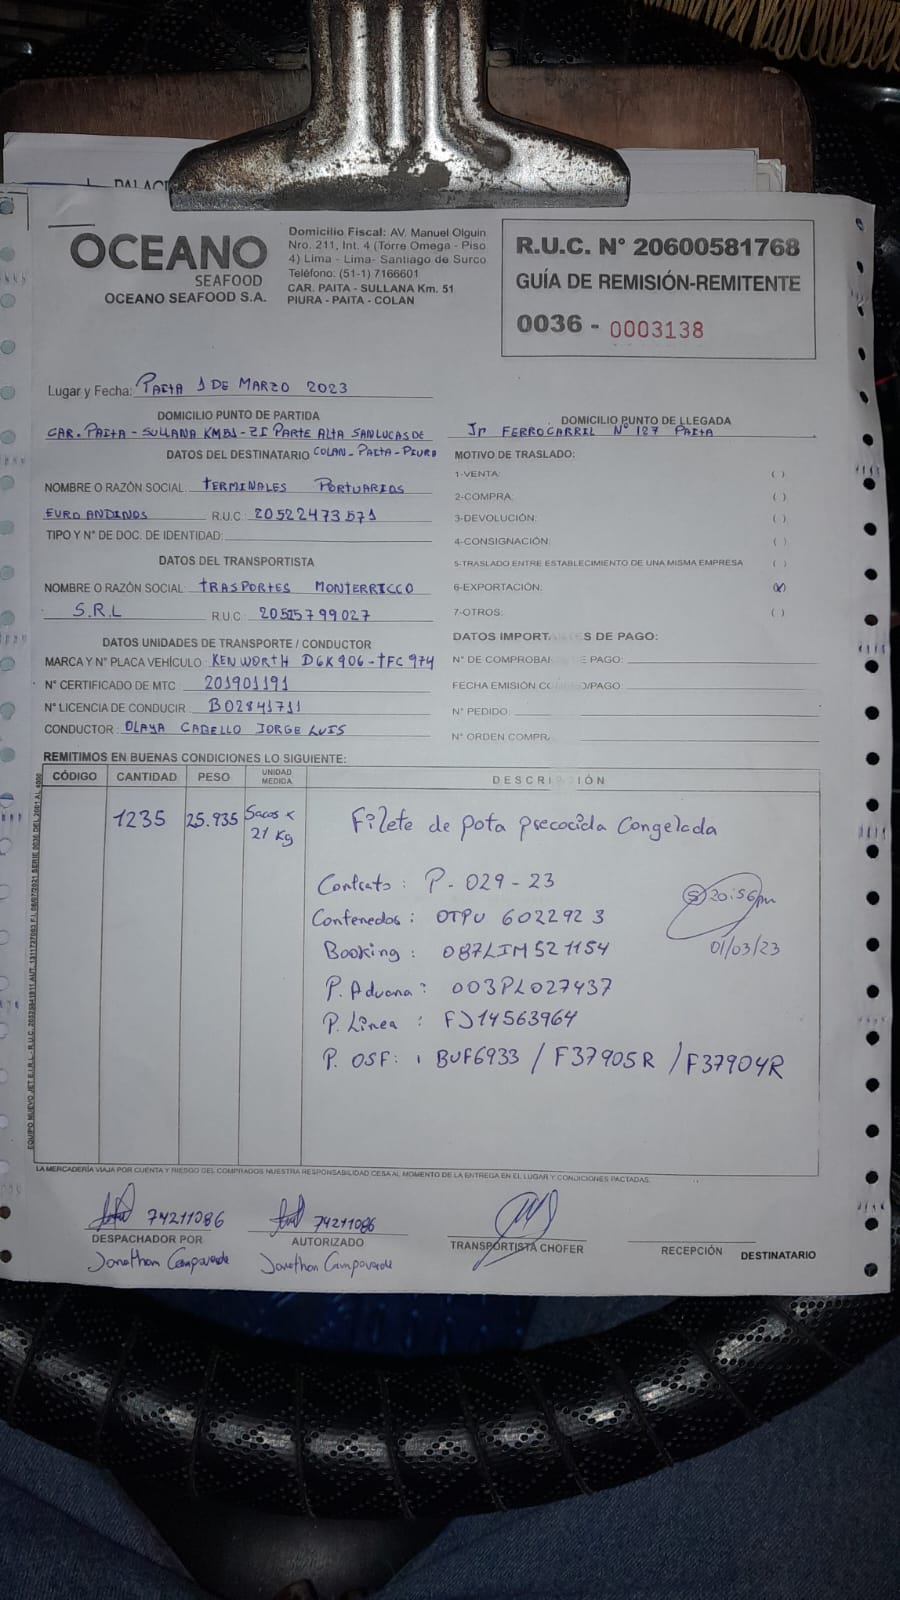 OCEANO
SEAFOOD
OCEANO SEAFOOD S.A.
Domicilio Fiscal: AV. Manuel Olguin
Nro. 211, Int. 4 (Torre Omega - Piso
4) Lima - Lima- Santiago de Surco
Teléfono: (51-1) 7166601
CAR. PAITA - SULLANA Km. 51
PIURA - PAITA - COLAN
R.U.C. N° 20600581768
GUÍA DE REMISIÓN-REMITENTE
0036 - 0003138
Lugar y Fecha: PAITA 1 DE MARZO 2023
DOMICILIO PUNTO DE PARTIDA
CAR. PAITA - SULLANA KM51 - ZI PARTE ALTA SAN LUCAS DE
COLAN - PAITA - PIURA
DOMICILIO PUNTO DE LLEGADA
Jr FERROCARRIL N° 127 PAITA
DATOS DEL DESTINATARIO
NOMBRE O RAZÓN SOCIAL: TERMINALES PORTUARIOS
EURO ANDINOS R.U.C: 20522473571
TIPO Y N° DE DOC. DE IDENTIDAD:
DATOS DEL TRANSPORTISTA
NOMBRE O RAZÓN SOCIAL: TRASPORTES MONTERRICCO
S.R.L R.U.C: 20525799027
DATOS UNIDADES DE TRANSPORTE / CONDUCTOR
MARCA Y N° PLACA VEHÍCULO: KENWORTH D6K906-TFC 974
N° CERTIFICADO DE MTC : 201901191
N° LICENCIA DE CONDUCIR : B02841711
CONDUCTOR : OLAYA CABELLO JORGE LUIS
MOTIVO DE TRASLADO:
1-VENTA: ( )
2-COMPRA: ( )
3-DEVOLUCIÓN: ( )
4-CONSIGNACIÓN: ( )
5-TRASLADO ENTRE ESTABLECIMIENTO DE UNA MISMA EMPRESA ( )
6-EXPORTACIÓN: (X)
7-OTROS: ( )
DATOS IMPORT S DE PAGO:
N° DE COMPROBA E PAGO:
FECHA EMISIÓN CO /PAGO:
N° PEDIDO:
N° ORDEN COMPR
REMITIMOS EN BUENAS CONDICIONES LO SIGUIENTE:
CÓDIGO CANTIDAD PESO UNIDAD MEDIDA DESCRI IÓN
1235 25.935 Sacos x 21 Kg Filete de pota precocida Congelada
Contrato : P- 029 - 23
Contenedos : OTPU 602292 3
Booking : 087LIM521154
P. Aduana : 003PL027437
P. Linea : FJ14563964
P. OSF: : BUF6933 / F37905R / F37904R
20:56pm
01/03/23
LA MERCADERÍA VIAJA POR CUENTA Y RIESGO DEL COMPRADOS NUESTRA RESPONSABILIDAD CESA AL MOMENTO DE LA ENTREGA EN EL LUGAR Y CONDICIONES PACTADAS.
74211086
DESPACHADOR POR
Jonathan Campoverde
74211086
AUTORIZADO
Jonathan Campoverde
TRANSPORTISTA CHOFER
RECEPCIÓN DESTINATARIO